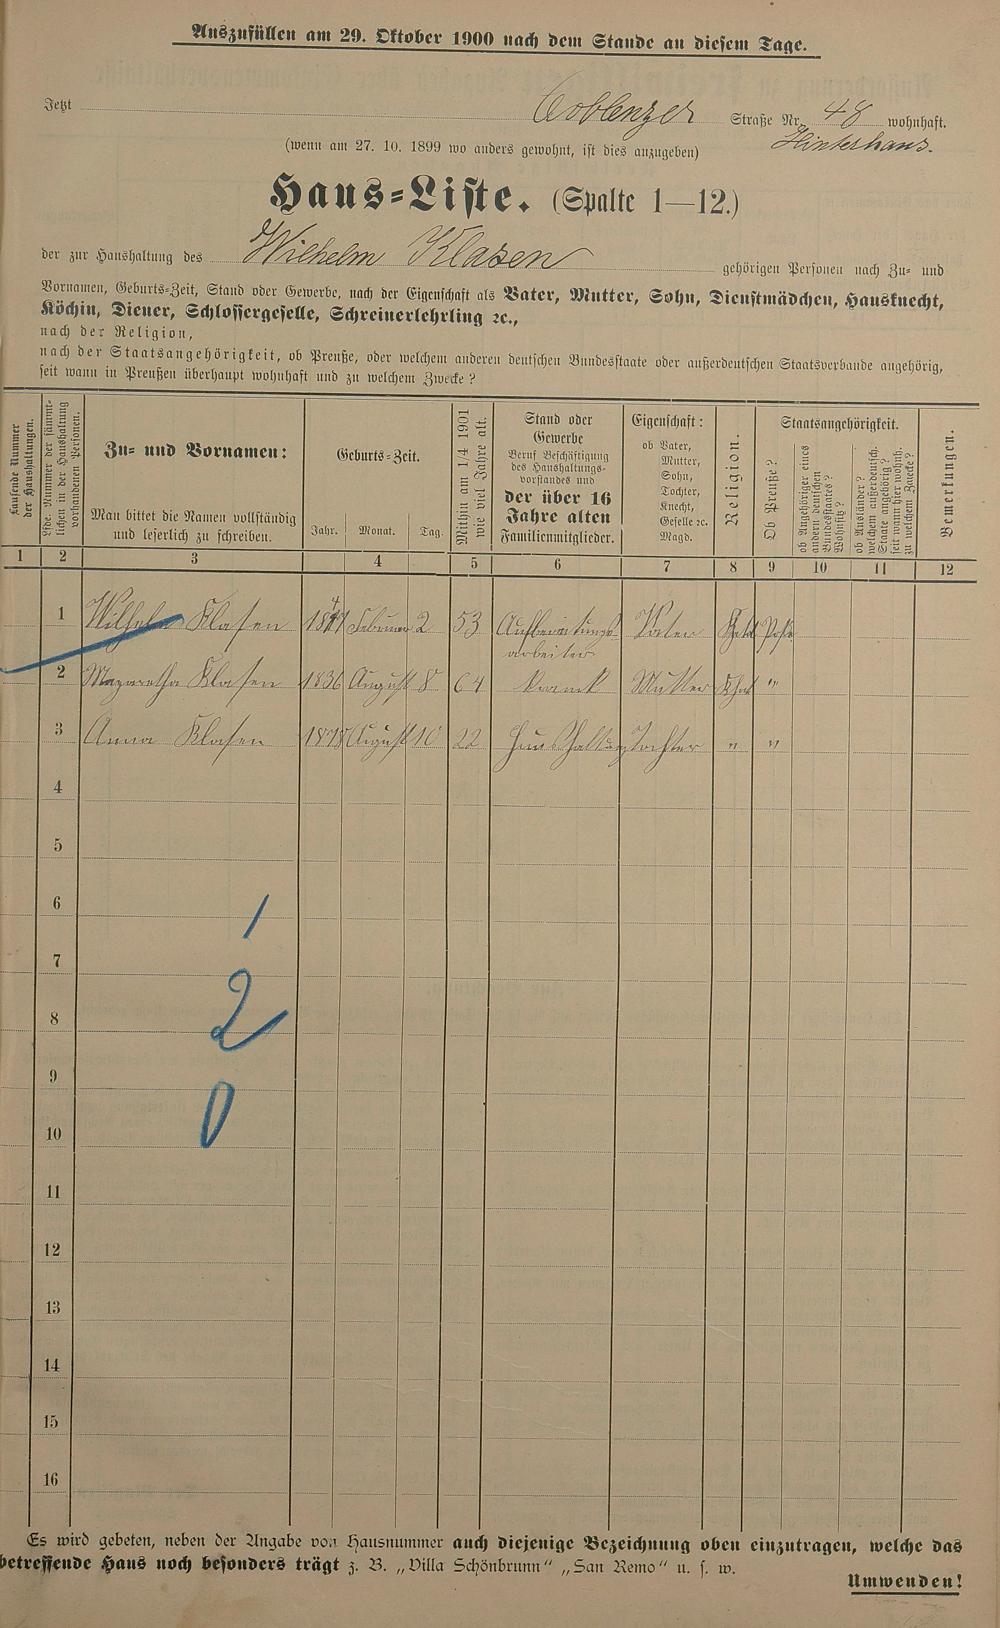 Auszufüllen am 29. Oktober 1900 nach dem Stande an diesem Tage.
Jetzt Coblenzer Straße Nr. 48 wohnhaft.
(wenn am 27. 10. 1899 wo anders gewohnt, ist dies anzugeben) Hinterhaus.
Haus-Liste. (Spalte 1—12.)
der zur Haushaltung des Wilhelm Klasen gehörigen Personen nach Zu- und
Vornamen, Geburts-Zeit, Stand oder Gewerbe, nach der Eigenschaft als Vater, Mutter, Sohn, Dienstmädchen, Hausknecht,
Köchin, Diener, Schlossergeselle, Schreinerlehrling ꝛc.,
nach der Religion,
nach der Staatsangehörigkeit, ob Preuße, oder welchem anderen deutschen Bundesstaate oder außerdeutschen Staatsverbande angehörig,
seit wann in Preußen überhaupt wohnhaft und zu welchem Zwecke?
Laufende Nummer
der Haushaltungen.
Lfde. Nummer der sämmt-
lichen in der Haushaltung
vorhandenen Personen.
Zu- und Vornamen:
Man bittet die Namen vollständig
und leserlich zu schreiben.
Geburts-Zeit.
Jahr. Monat. Tag.
Mithin am 1/4 1901
wie viel Jahre alt.
Stand oder
Gewerbe
Beruf Beschäftigung
des Haushaltungs-
vorstandes und
der über 16
Jahre alten
Familienmitglieder.
Eigenschaft:
ob Vater,
Mutter,
Sohn,
Tochter,
Knecht,
Geselle ꝛc.
Magd.
Religion.
Staatsangehörigkeit.
Ob Preuße?
ob Angehöriger eines
andern deutschen
Bundesstaates?
Wohnsitz?
ob Ausländer?
welchem außerdeutsch.
Staate angehörig?
seit wann hier wohnh.
zu welchem Zwecke?
Bemerkungen.
1 2 3 4 5 6 7 8 9 10 11 12
1 Wilhelm Klasen 1847 Februar 2 53 Aufbereitungs Vater
arbeiter
2 Margaretha Klasen 1836 August 8 64 krank Mutter "
3 Anna Klasen 1878 August 10 22 Haushaltung Tochter " "
4
5
6
1
7
2
8
9
0
10
11
12
13
14
15
16
Es wird gebeten, neben der Angabe von Hausnummer auch diejenige Bezeichnung oben einzutragen, welche das
betreffende Haus noch besonders trägt z. B. „Villa Schönbrunn" „San Remo" u. s. w.
Umwenden!